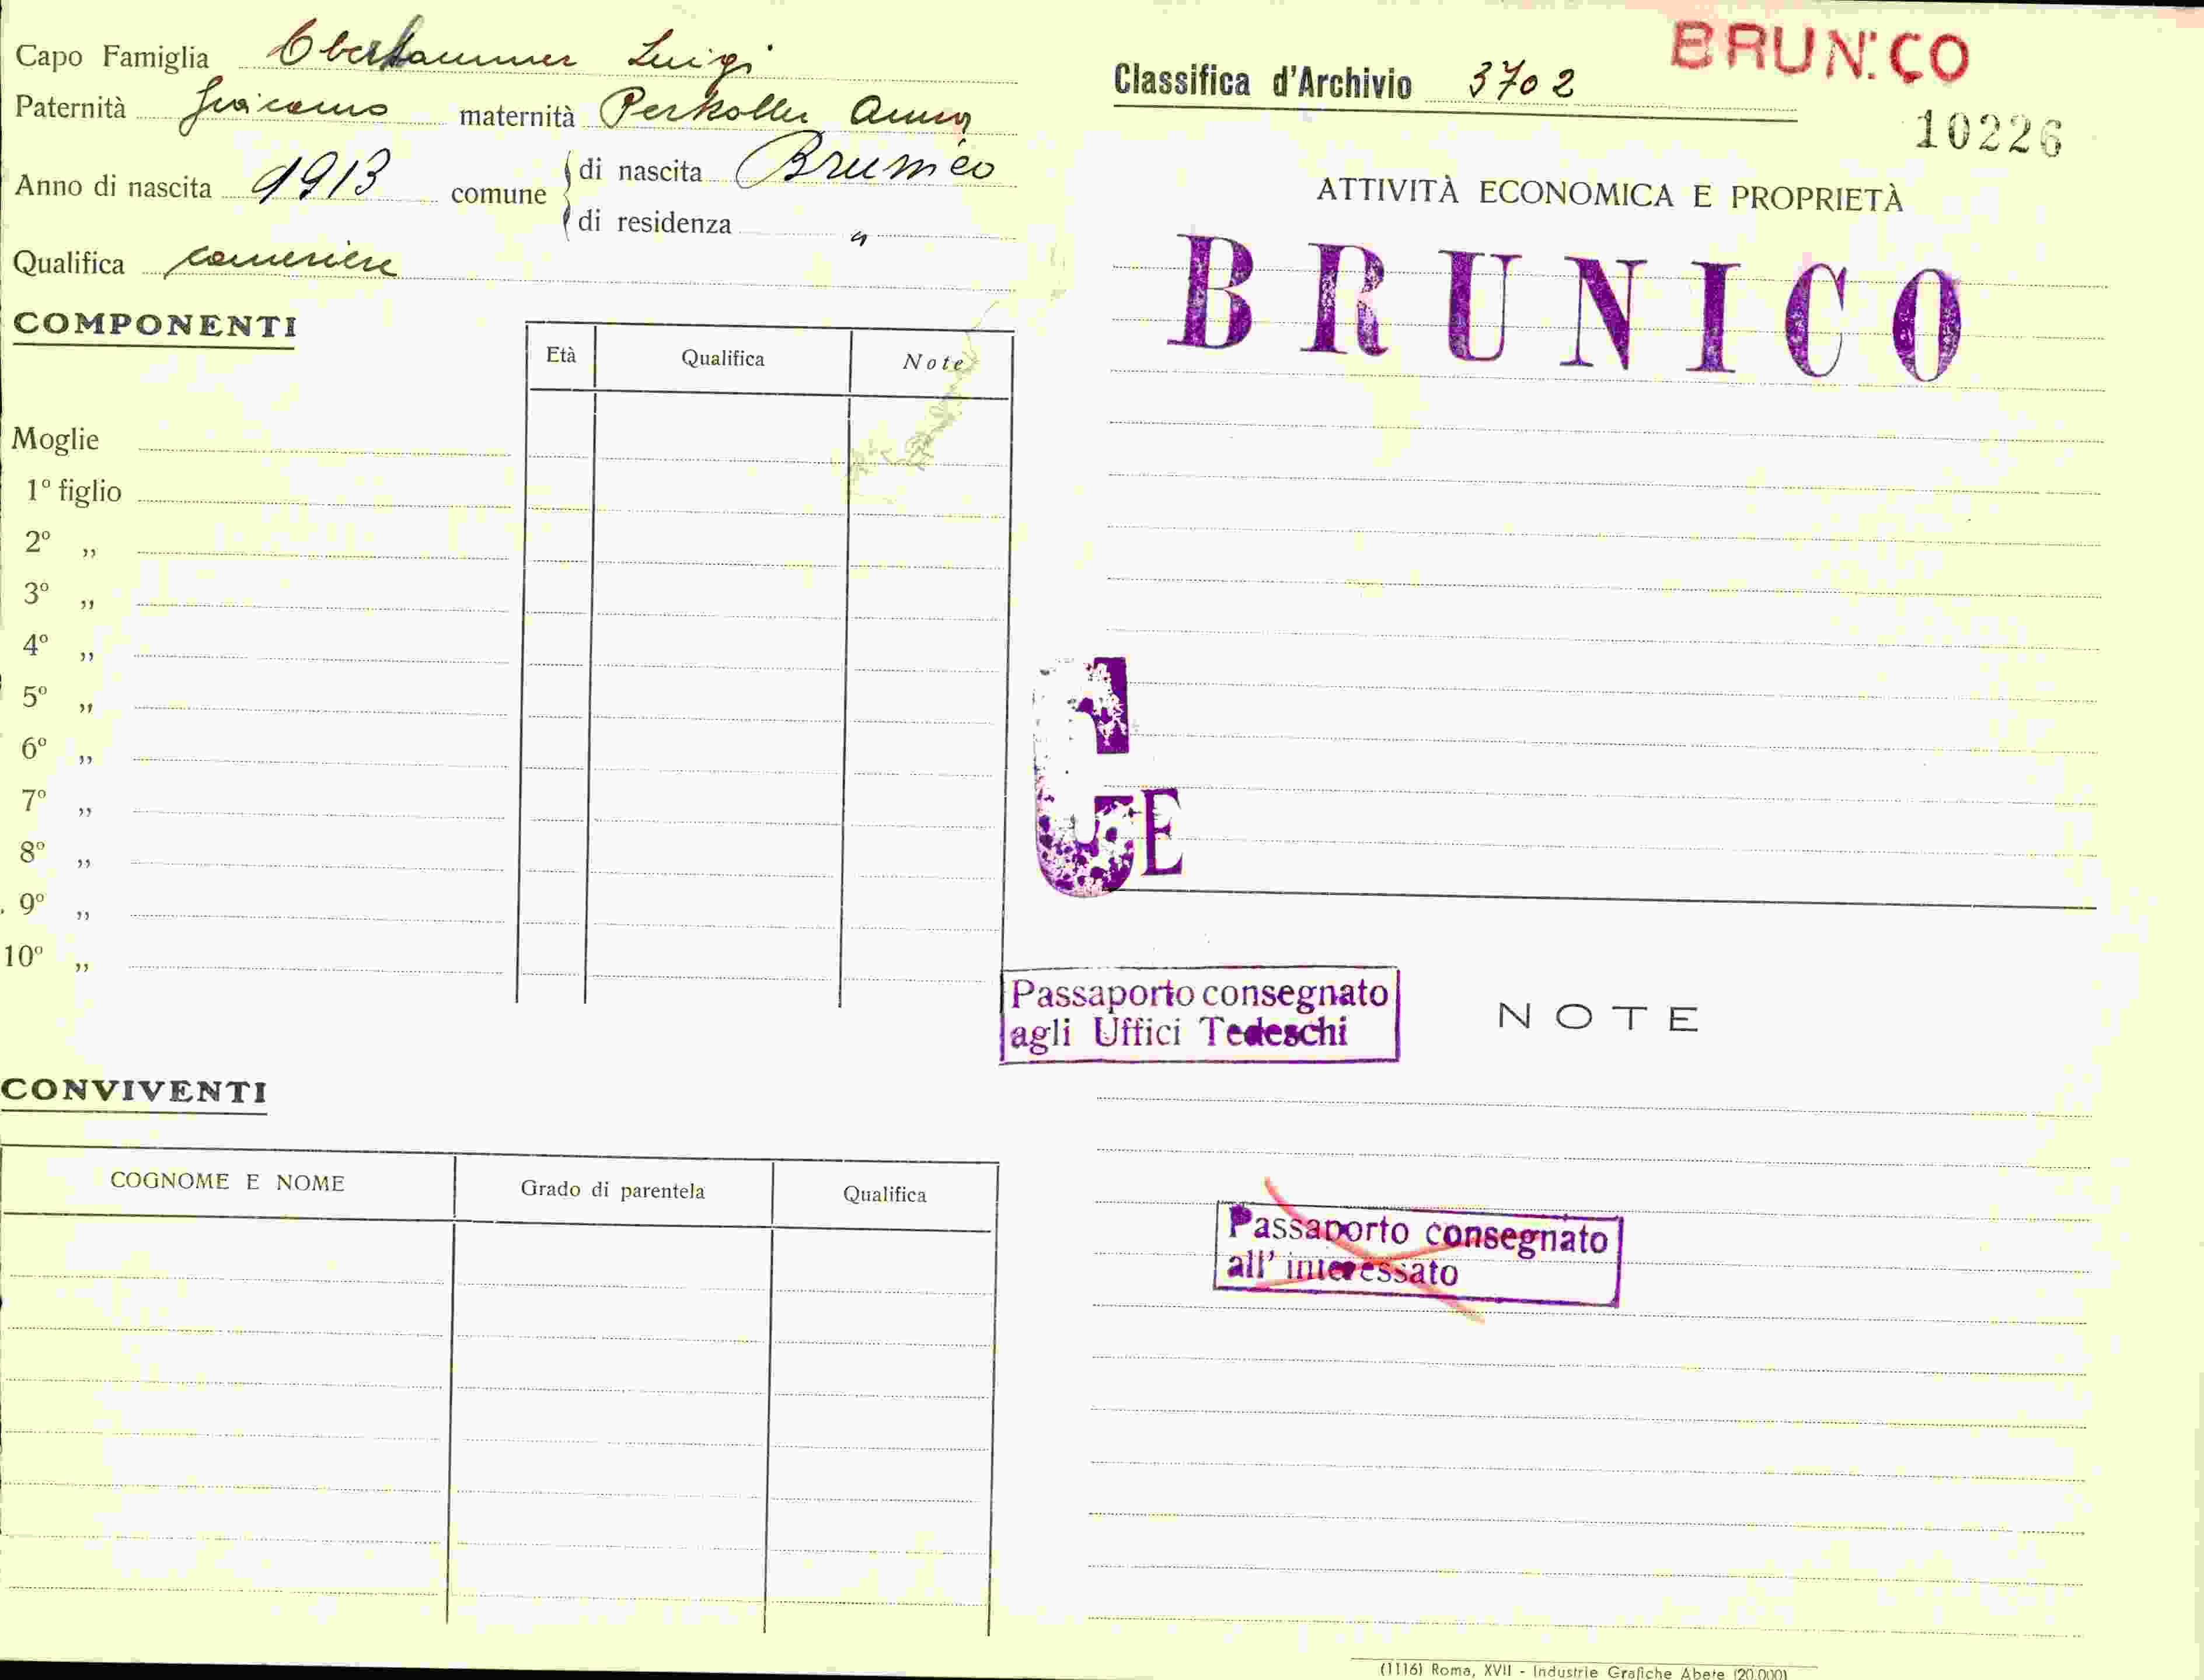 Capo Famiglia Oberhammer Luigi
Paternità Giacomo maternità Perkoller Anna
Anno di nascita 1913 comune di nascita Brunico
di residenza "
Qualifica cameriere
COMPONENTI
Età Qualifica Note
Moglie
1º figlio
2º ,,
3º ,,
4º ,,
5º ,,
6º ,,
7º ,,
8º ,,
9º ,,
10º ,,
CONVIVENTI
COGNOME E NOME Grado di parentela Qualifica
BRUNICO
Classifica d'Archivio 3702
10226
ATTIVITÀ ECONOMICA E PROPRIETÀ
BRUNICO
G
E
Passaporto consegnato
agli Uffici Tedeschi
NOTE
Passaporto consegnato
all' interessato
(1116) Roma, XVII - Industrie Grafiche Abete (20.000)